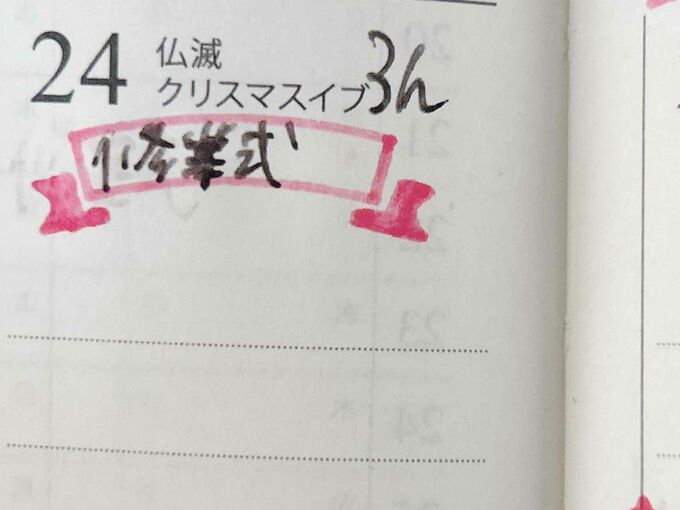 24 仏滅
クリスマスイブ 3h
修業式